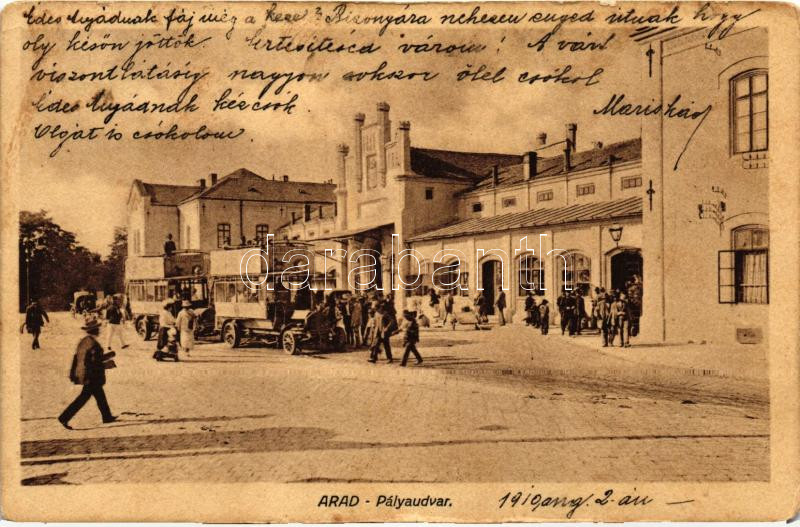 Édes Anyádnak fáj még a keze? Bizonyára nehezen enged útnak hogy
oly későn jöttök. Értesítésed várom! A várt
viszontlátásig nagyon sokszor ölel csókol
Édes Anyádnak kézcsók.
Mariskád
Olgát is csókolom.
darabanth.com
ARAD - Pályaudvar.
1910 aug. 2.-án